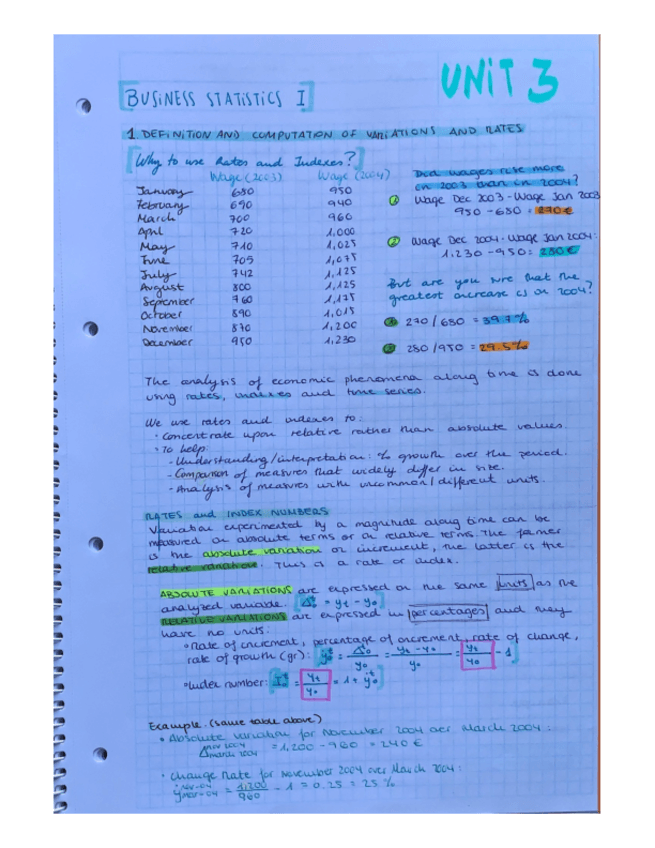 UNIT 3
BUSINESS STATISTICS I
1 DEFINITION AND COMPUTATION OF VARIATIONS AND RATES
Why to use Rates and Indexes?
Wage (2003) Wage (2004)
January 680 950
February 690 940
March 700 960
April 720 1,000
May 710 1,025
June 705 1,075
July 742 1,125
August 800 1,125
September 760 1,175
October 890 1,015
November 870 1,200
December 950 1,230
Did wages rise more
in 2003 than in 2004?
1 Wage Dec 2003 - Wage Jan 2003
950 - 680 = 270 €
2 Wage Dec 2004 - Wage Jan 2004:
1,230 - 950 = 280 €
But are you sure that the
greatest increase is in 2004?
270 / 680 = 39.7 %
280 / 950 = 29.5 %
The analysis of economic phenomena along time is done
using rates, indexes and time series.
We use rates and indexes to:
· Concentrate upon relative rather than absolute values.
· To help:
- Understanding / interpretation: % growth over the period.
- Comparison of measures that widely differ in size.
- Analysis of measures with uncommon / different units.
RATES and INDEX NUMBERS
Variation experimented by a magnitude along time can be
measured in absolute terms or in relative terms. The former
is the absolute variation or increment, the latter is the
relative variation. This is a rate or index.
ABSOLUTE VARIATIONS are expressed in the same units as the
analyzed variable. [Δᵗ₀ = yt - y0]
RELATIVE VARIATIONS are expressed in percentages and may
have no units:
· Rate of increment, percentage of increment, rate of change,
rate of growth (gr): [ẏᵗ₀ = Δᵗ₀ / y0 = yt - y0 / y0 = yt / y0 - 1]
· Index number: [Iᵗ₀ = yt / y0 = 1 + ẏᵗ₀]
Example. (same table above)
· Absolute variation for November 2004 over March 2004:
Δ nov 2004 march 2004 = 1,200 - 960 = 240 €
· Change Rate for November 2004 over March 2004:
ẏ nov-04 mar-04 = 1,200 / 960 - 1 = 0.25 = 25 %